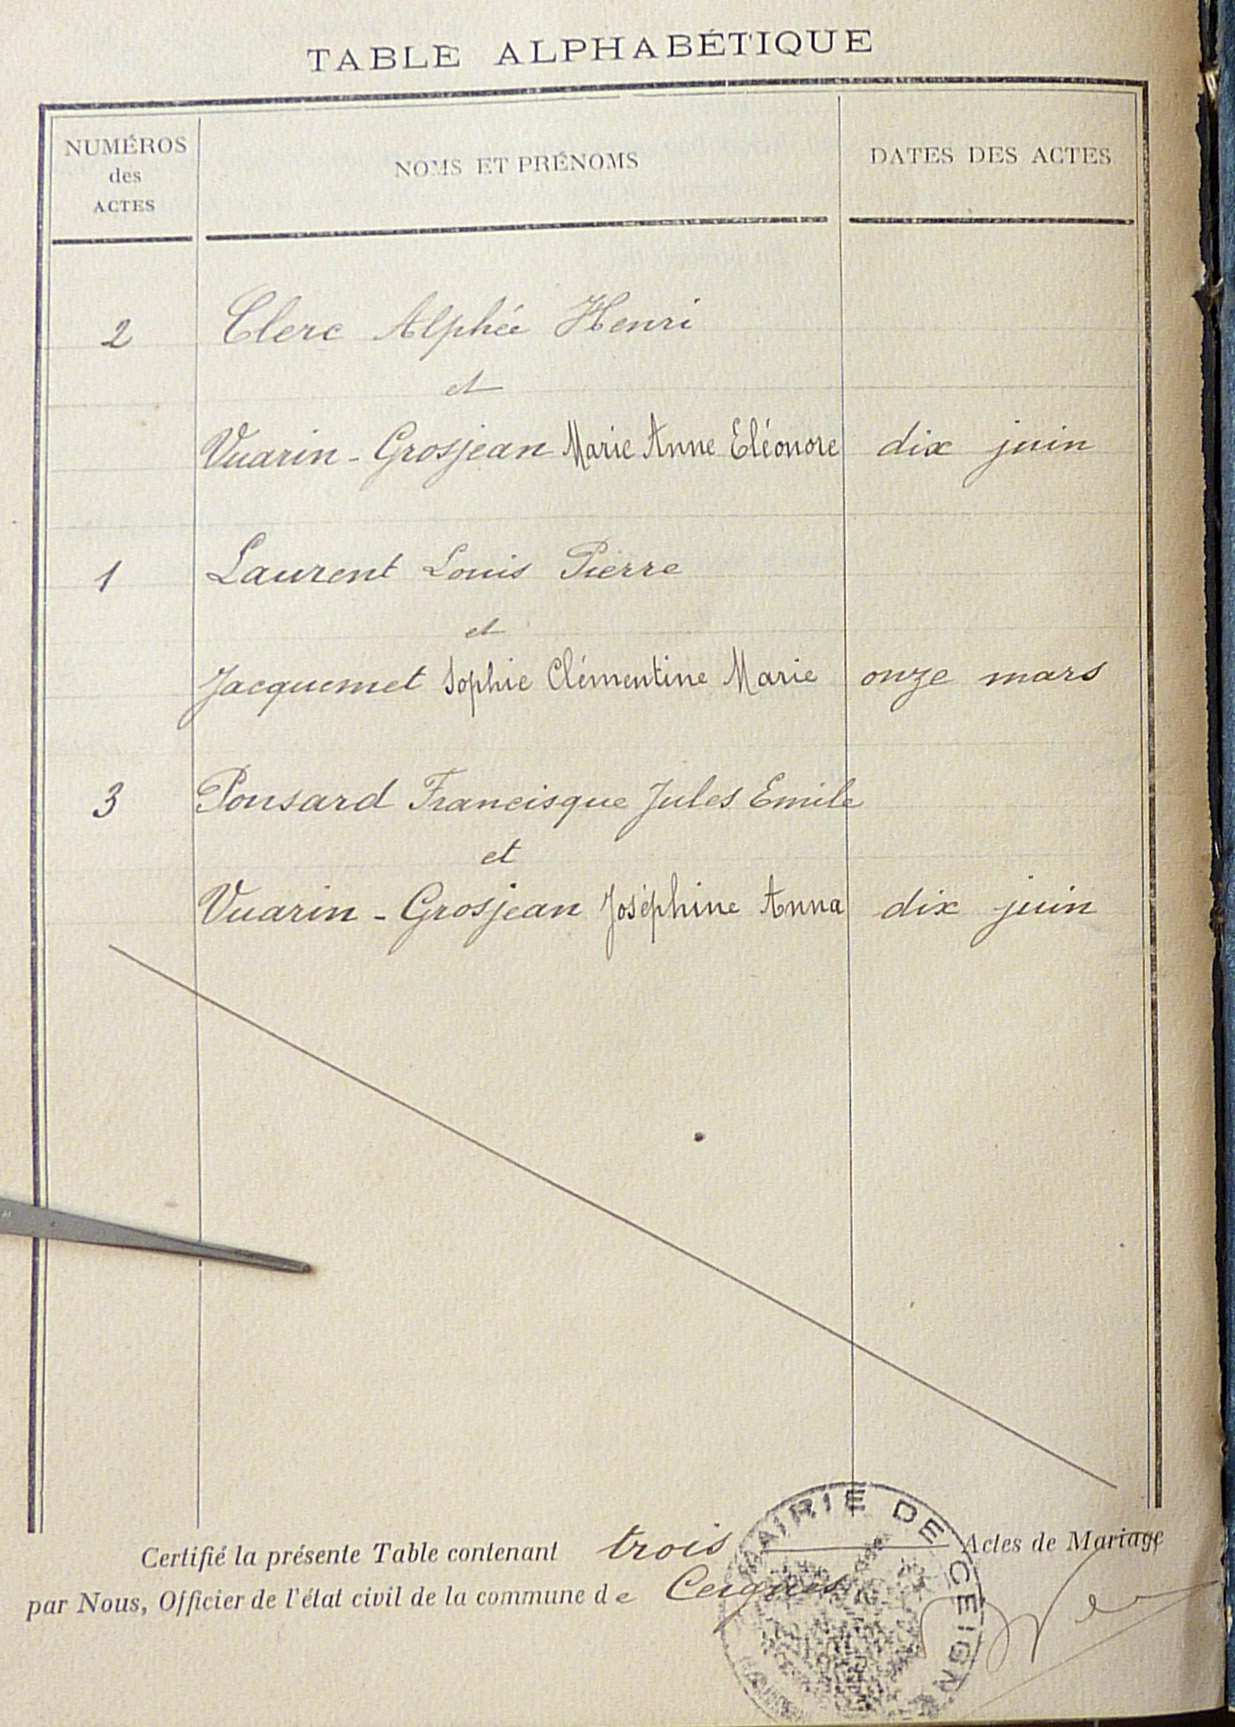 TABLE ALPHABÉTIQUE
NUMÉROS des ACTES
NOMS ET PRÉNOMS
DATES DES ACTES
2 Clerc Alphée Henri
et
Vuarin-Grosjean Marie Anne Eléonore dix juin
1 Laurent Louis Pierre
et
Jacquemet Sophie Clémentine Marie onze mars
3 Ponsard Francisque Jules Emile
et
Vuarin-Grosjean Joséphine Anna dix juin
Certifié la présente Table contenant trois Actes de Mariage
par Nous, Officier de l'état civil de la commune de Ceignes
MAIRIE DE CEIGN